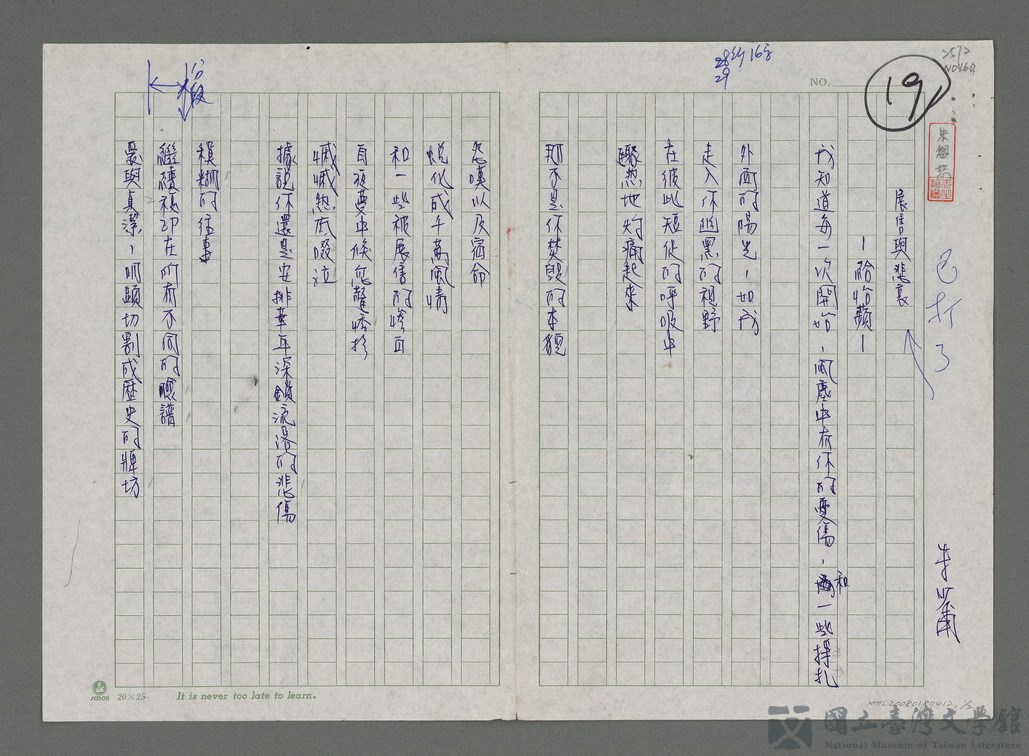 2572
NO460
19
NO.
28行16字
29
已打了
展售與悲哀
—給怡蘋—
我知道每一次開始，風塵中有你的憂傷，和一些掙扎
外面的陽光，如我
走入你幽黑的視野
在彼此短促的呼吸中
驟然地灼痛起來
那不是你焚毀的本貌
怨嘆以及宿命
蛻化成千萬風情
和一些被展售的
自夜夢中倏忽驚
戚戚然底啜泣
據說你還是安排華年深鎖流落的悲傷
模糊的往事
繼續複印在所有不同的臉譜
裏與貞潔，明顯切割成歷史的牌坊
分段
20×25
It is never too late to learn.
國立臺灣文學館
National Museum of Taiwan Literature